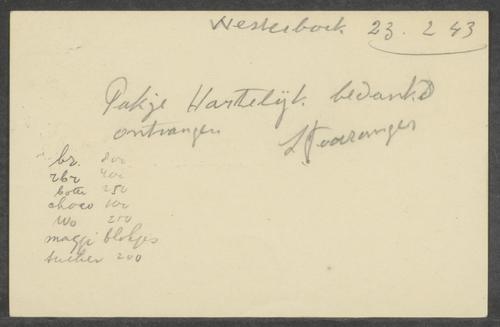 Westerbork 23.2 43
Pakje Hartelijk bedankt
ontvangen
br. 800
rbr 400
boter 250
choco 100
wo 250
maggi blokjes
suiker 200